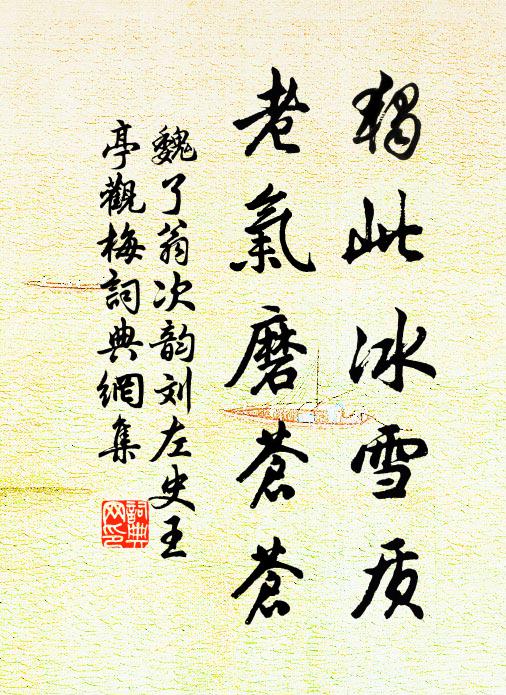 獨此冰雪质
老氣磨蒼蒼
魏了翁次韵刘左史王
亭觀梅詞典網集
詞典网印